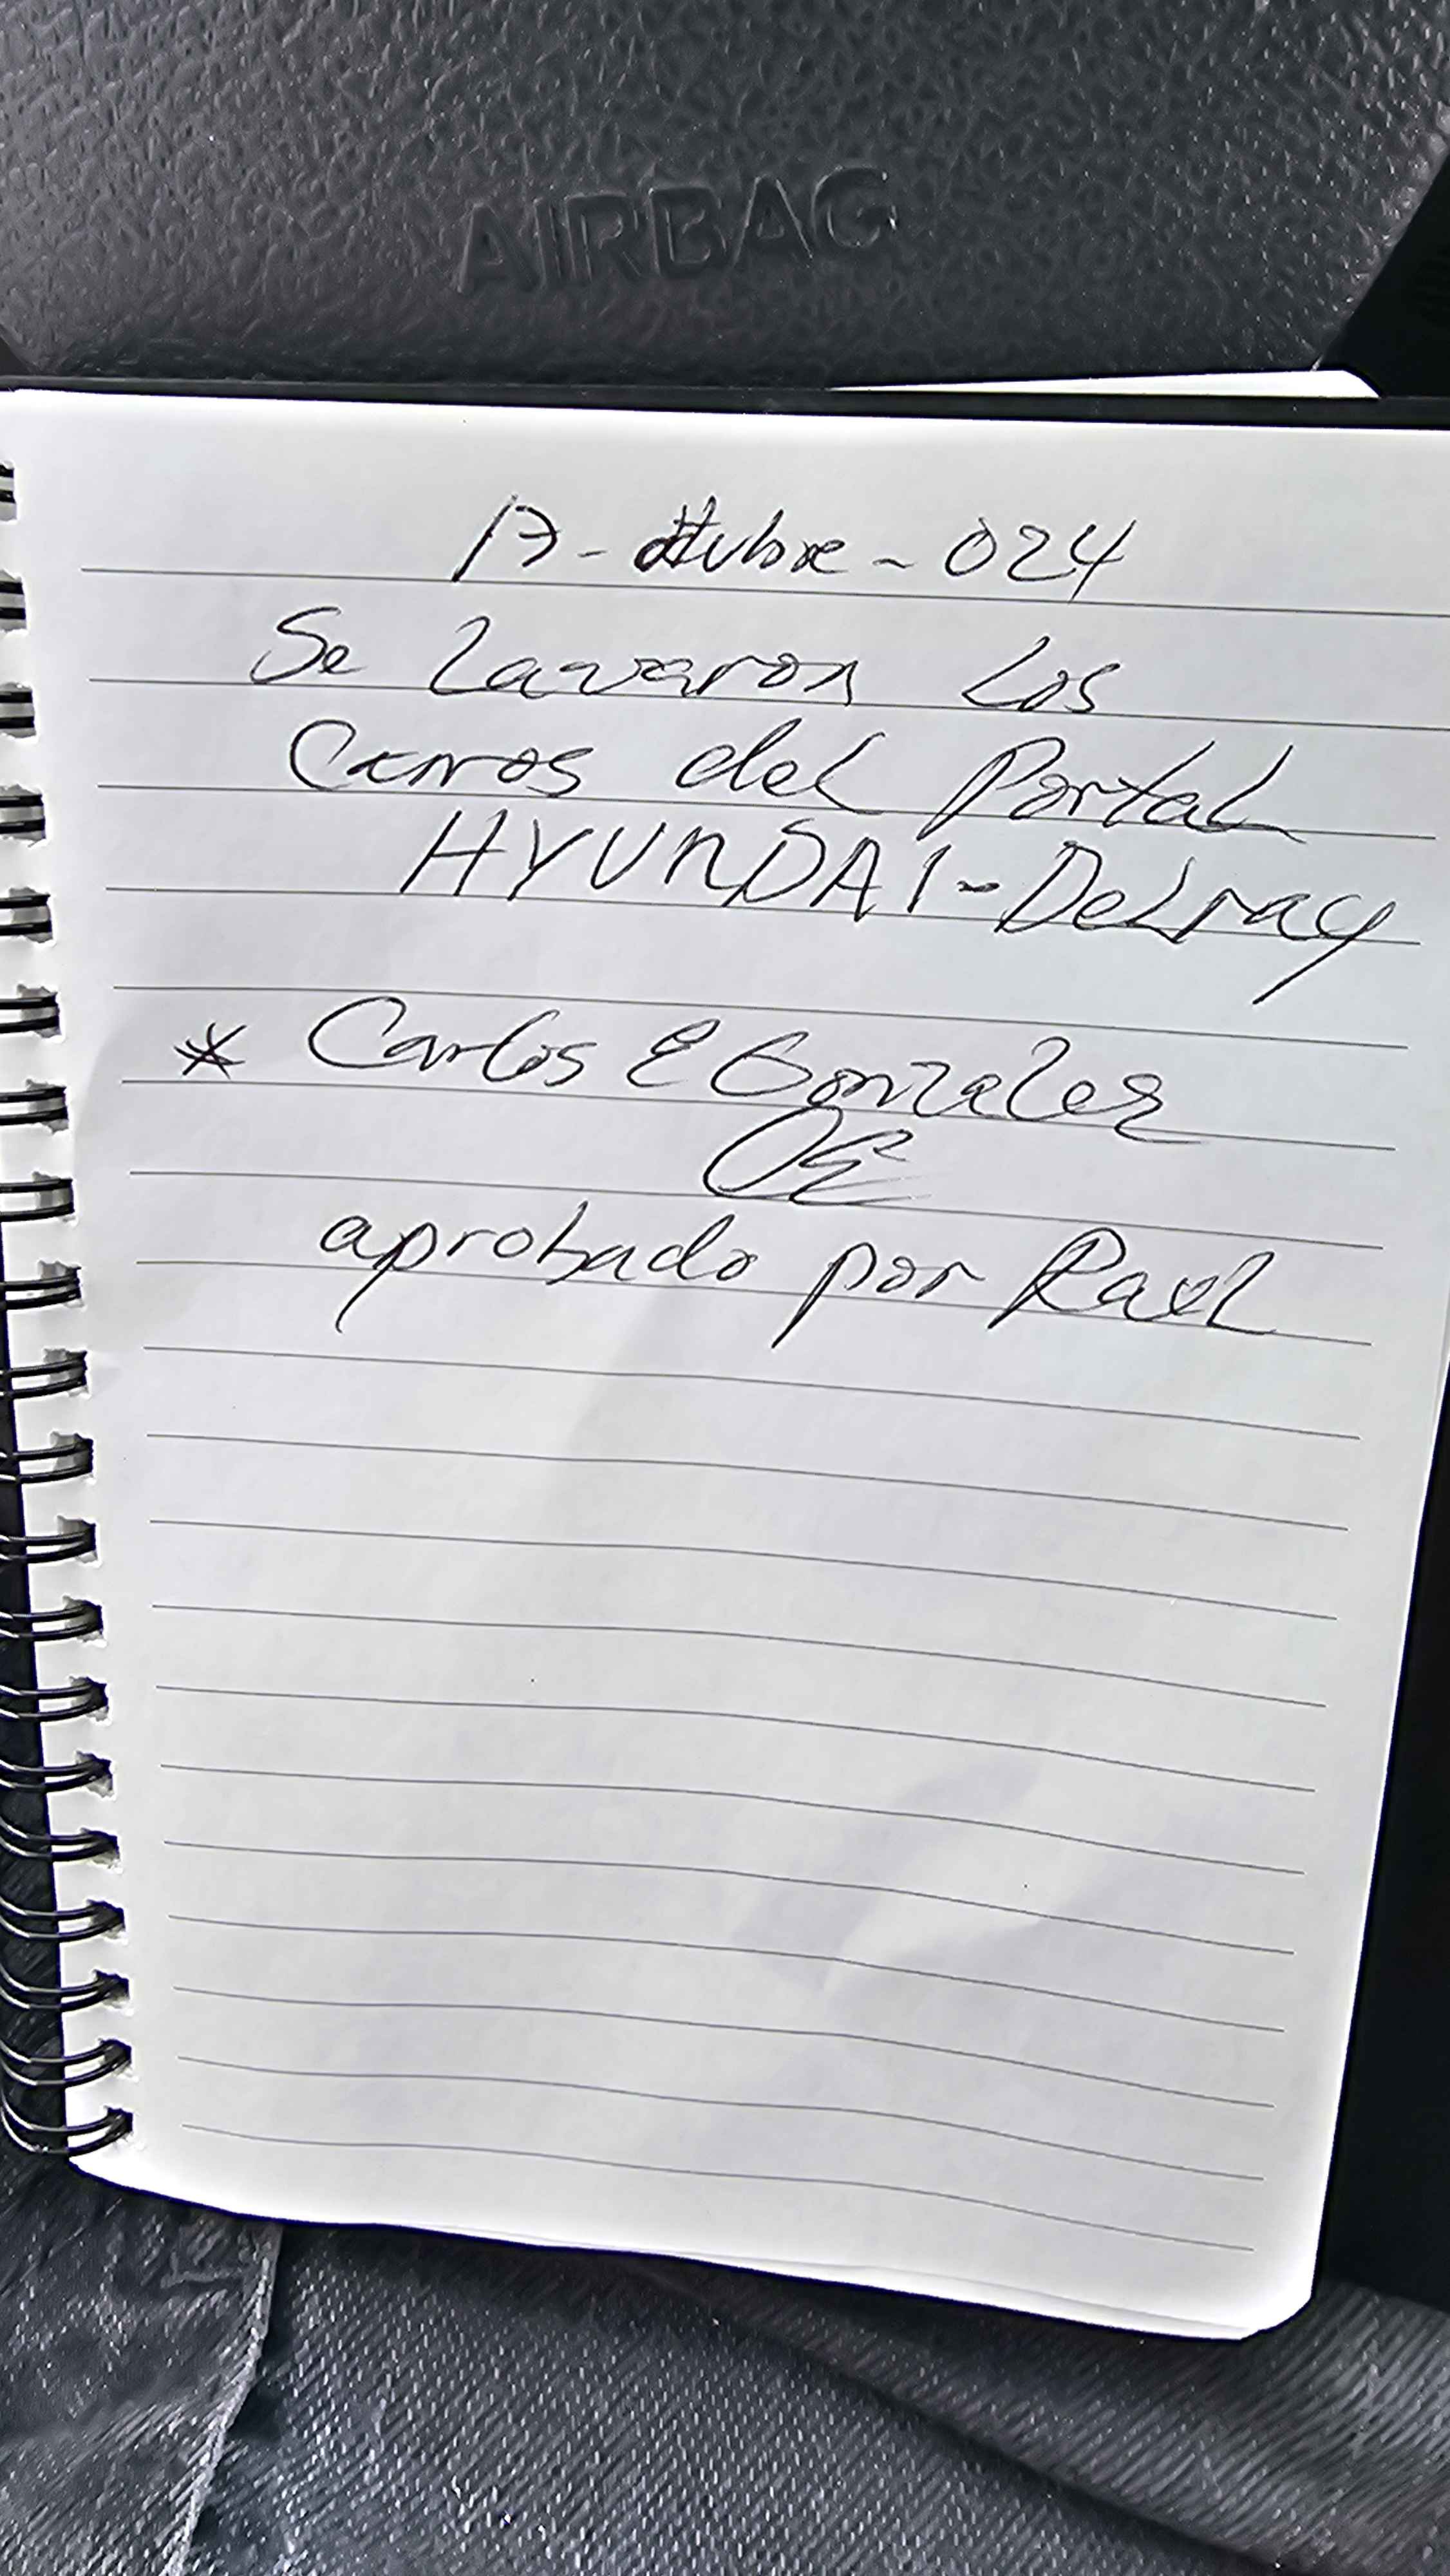 AIRBAG
17 - octubre - 024
Se Lavaron Los
Carros del Portal
HYUNDAI - Delray
* Carlos E Gonzalez
aprobado por Raul